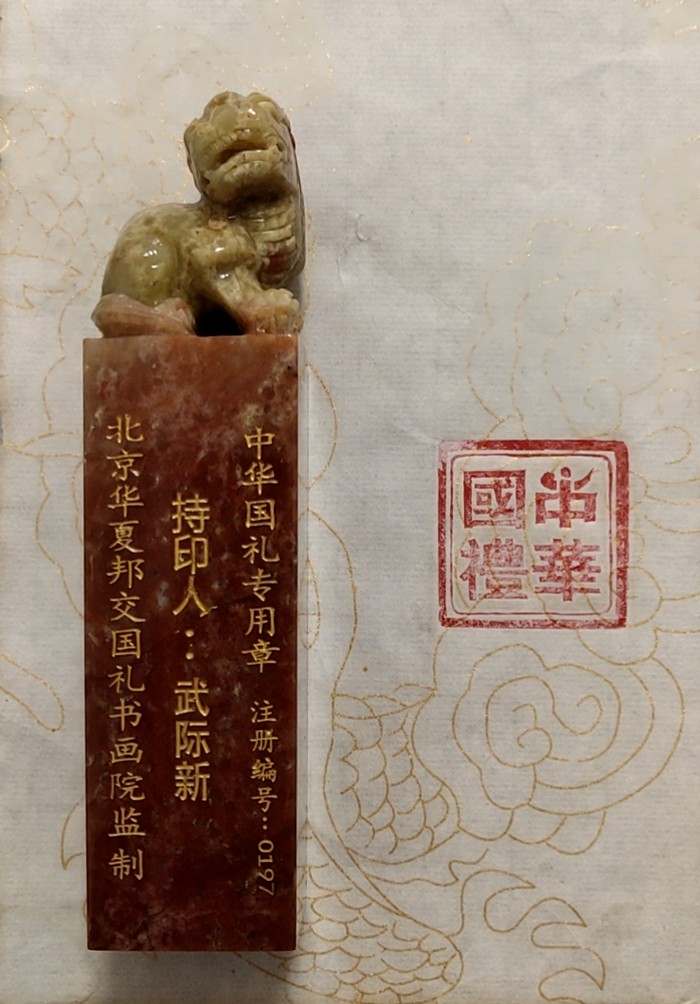 中华国礼专用章 注册编号：0197
持印人：武际新
北京华夏邦交国礼书画院监制
中華
國禮